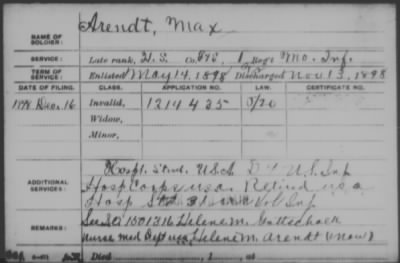 NAME OF SOLDIER: Arendt, Max
SERVICE: Late rank, H. S. Co. F&S, 1 Reg't Mo. Inf.
TERM OF SERVICE: Enlisted May 14, 1898 Discharged Nov 13, 1898
DATE OF FILING. CLASS. APPLICATION NO. LAW. CERTIFICATE NO.
1898 Dec. 16 Invalid, 1214435
Widow,
Minor,
ADDITIONAL SERVICES: Hospl. Stwd. U.S.A. D 4 U.S. Inf
Hosp Corps U.S.A. Retired U.S.A
Hosp Stwd 31 Vol Inf
REMARKS: See 1501316 Helene M.
Nurse Med Dept USA, Helene M. Arendt (now)
Died , 1 , at